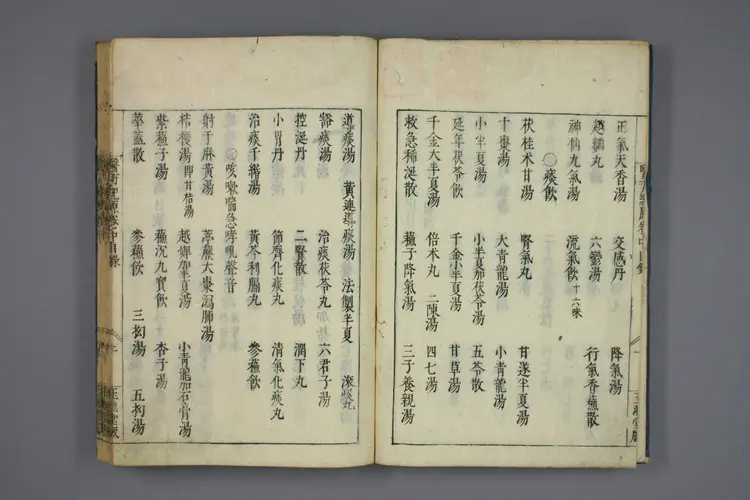 正氣天香湯 交感丹 降氣湯
越鞠丸 六鬱湯 行氣香蘓散
神仙九氣湯 流氣飲十六味
○痰飲
茯桂术甘湯 腎氣丸 甘遂半夏湯
十棗湯 大青龍湯 小青龍湯
小半夏湯 小半夏茄茯苓湯 五苓散
延年茯苓飲 千金小半夏湯 甘草湯
千金大半夏湯 倍术丸 二陳湯 四七湯
救急稀涎散 蘓子降氣湯 三子養親湯
導痰湯 黃連導痰湯 法製半夏 滾痰丸
豁痰湯 治痰茯苓丸 六君子湯
控涎丹 二賢散 潤下丸
小胃丹 節齊化痰丸 清氣化痰丸
治痰千緡湯 黃芩利膈丸 參蘓飲
○咳嗽喘急哮吼聲音
射干麻黃湯 葶藶大棗瀉肺湯
桔梗湯即甘桔湯 越婢加半夏湯 小青龍加石膏湯
紫蘓子湯 蘓沉九寶飲 杏子湯
華蓋散 參蘓飲 三拗湯 五拗湯